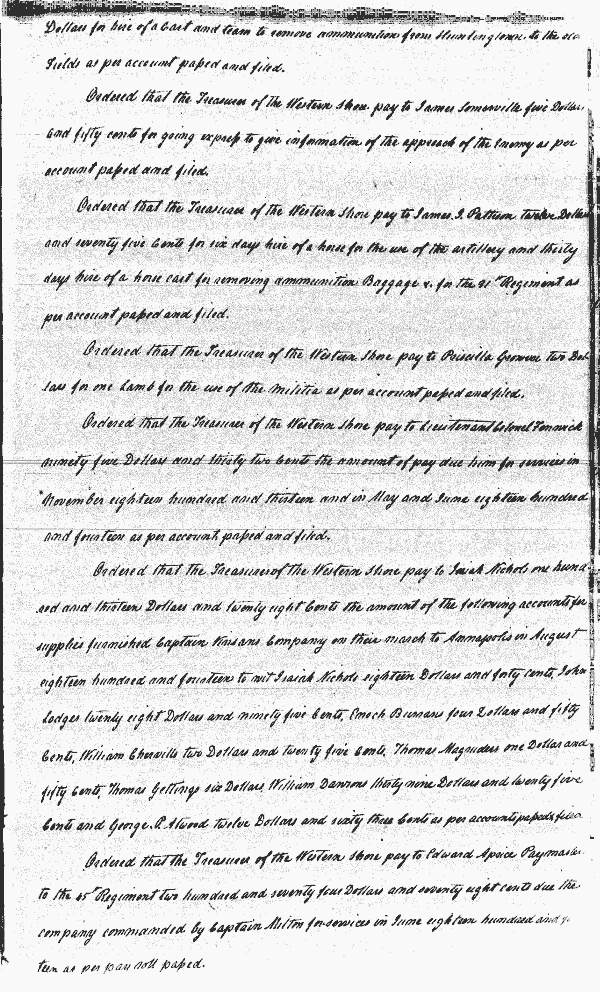 Dollars for hire of a Cart and team to remove ammunition from Huntingtown to the old
Fields as per account paſsed and filed.
Ordered that the Treasurer of the Western Shore pay to James Somerville five Dollars
and fifty cents for going expreſs to give information of the approach of the Enemy as per
account paſsed and filed.
Ordered that the Treasurer of the Western Shore pay to James I. Pattison twelve Dollars
and seventy five Cents for six days hire of a horse for the use of the artillery and thirty
days hire of a horse cart for removing ammunition Baggage &c. for the 31st Regiment as
per account paſsed and filed.
Ordered that the Treasurer of the Western Shore pay to Priscilla two Dol
lars for one Lamb for the use of the Militia as per account paſsed and filed.
Ordered that the Treasurer of the Western Shore pay to Lieutenant Colonel Fenwick
ninety five Dollars and thirty two Cents the amount of pay due him for services in
November eighteen hundred and thirteen and in May and June eighteen hundred
and fourteen as per account paſsed and filed.
Ordered that the Treasurer of the Western Shore pay to Isaiah Nichols one hund
red and thirteen Dollars and twenty eight Cents the amount of the following accounts for
supplies furnished Captain Company on their march to Annapolis in August
eighteen hundred and fourteen to wit Isaiah Nichols eighteen Dollars and forty cents, John
Lodges twenty eight Dollars and ninety five Cents, Enoch Burrans four Dollars and fifty
Cents, William two Dollars and twenty five Cents, Thomas Magruders one Dollar and
fifty Cents, Thomas Gettings six Dollars, William Dawsons thirty nine Dollars and twenty five
Cents and George R. Atwood twelve Dollars and sixty three Cents as per accounts paſsed & filed
Ordered that the Treasurer of the Western Shore pay to Edward Paymaster
to the 45th Regiment two hundred and seventy four Dollars and seventy eight cents due the
company commanded by Captain Milton for services in June eighteen hundred and
teen as per pay roll paſsed.